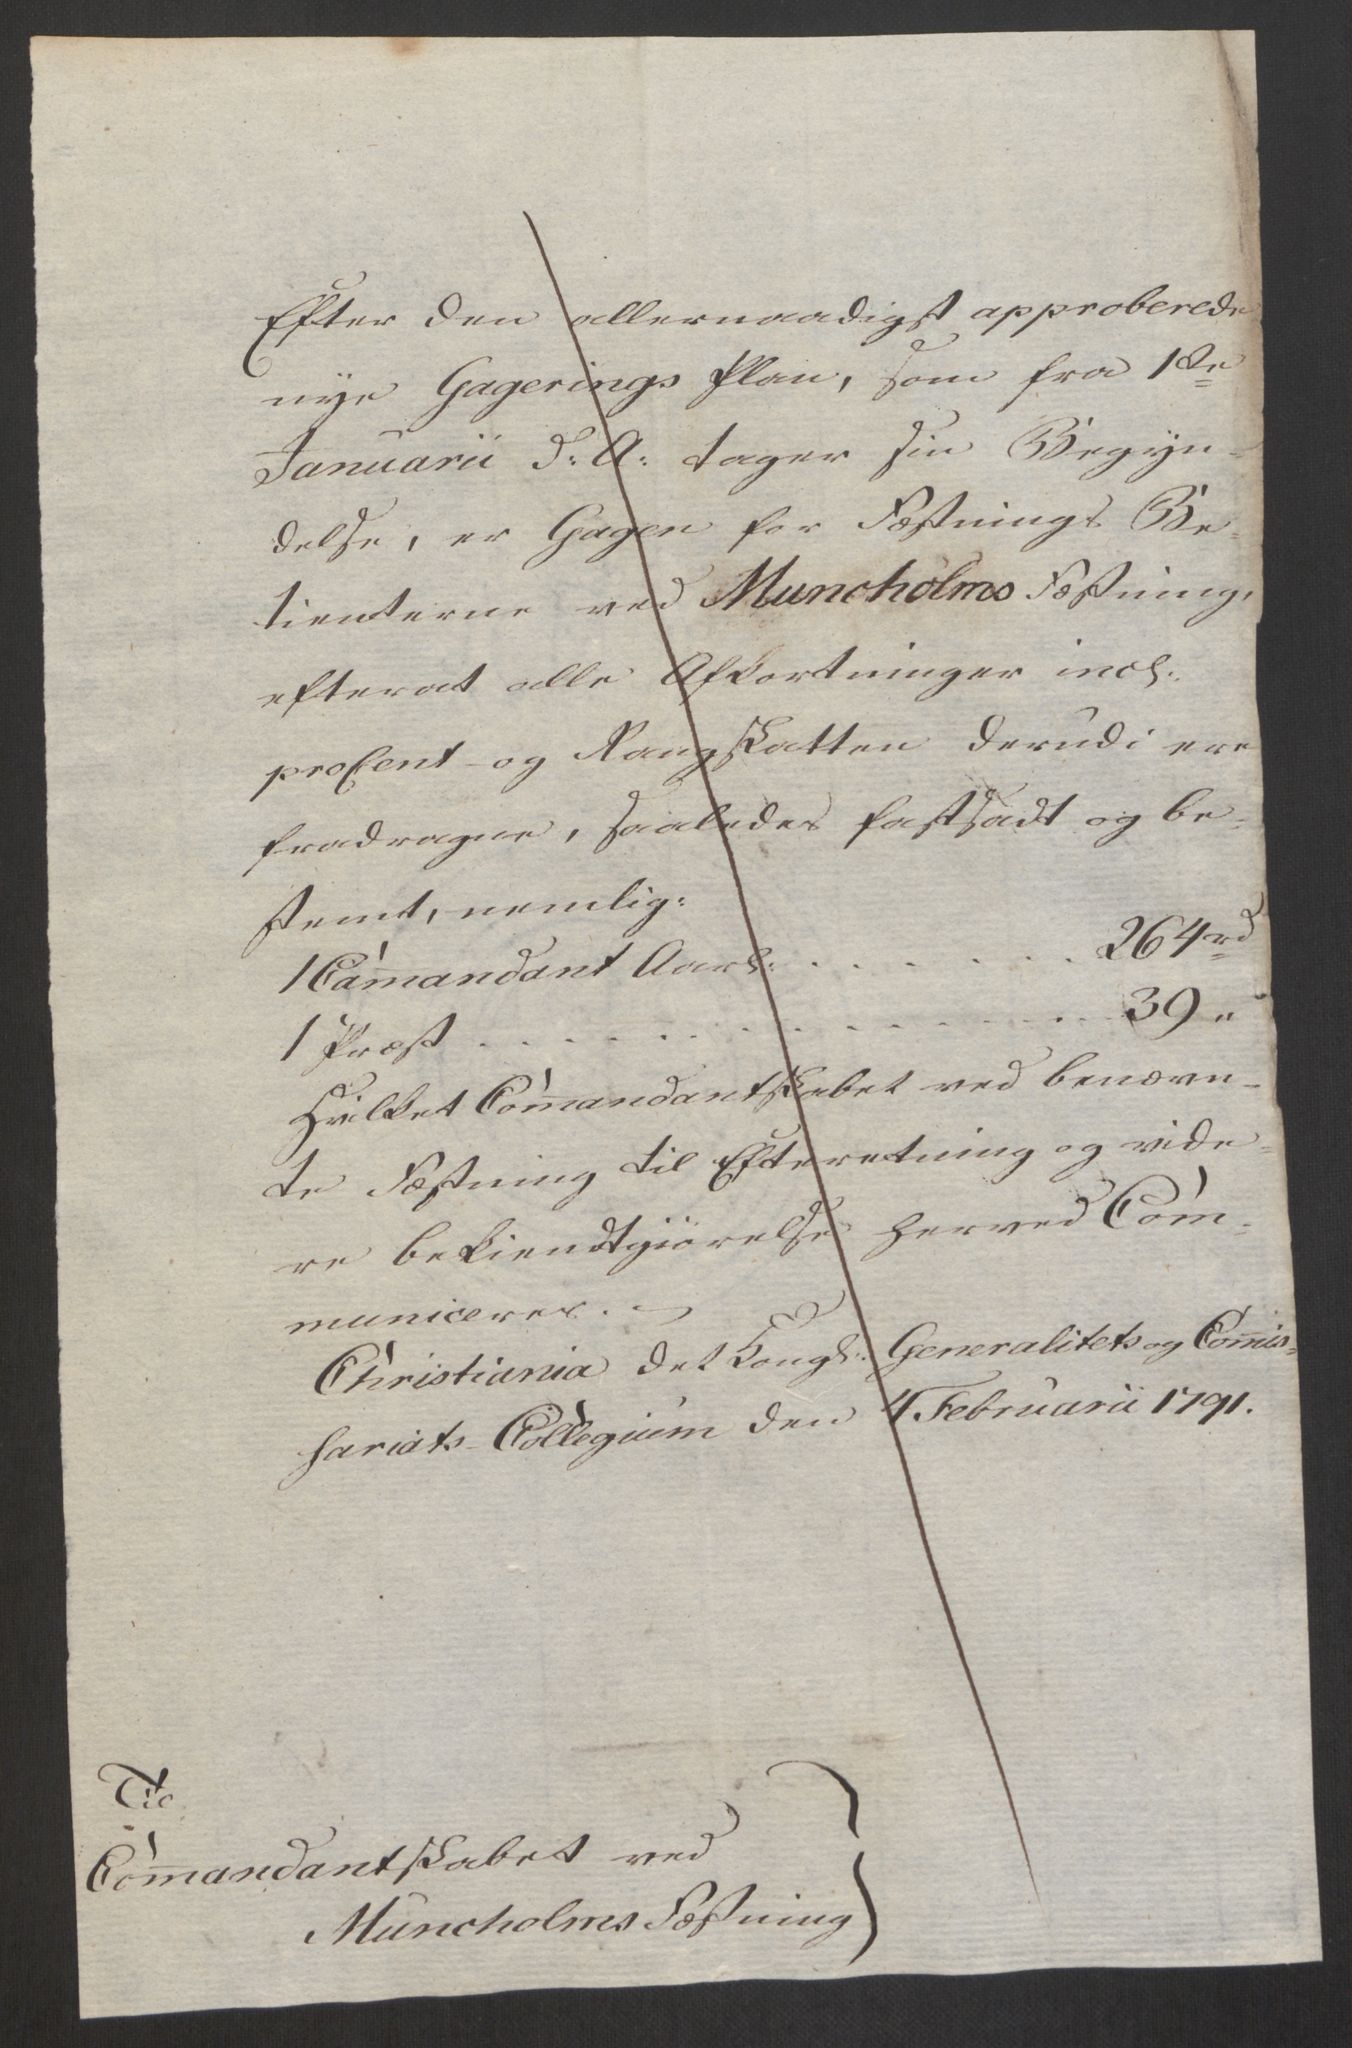 Efter den allernaadigst approberede
nye Gagerings Plan, som fra 1te
Januarii d: A: tager sin Begyn-
delse, er Gagen for Fæstnings Be-
tienterne ved Muncholms Fæstning,
efterat alle Afkortninger incl:
proCent- og Rangskatten derudi ere
fradragne, saaledes fastsadt og be-
stemt, nemlig:
1 Com̅andant Aarl: . . . . . . . 264 rd
1 Præst . . . . . . . . . . . . . . . 39 "
Hvilket Com̅andantskabet ved benævn-
te Fæstning til Efterretning og vide-
re bekiendtgiörelse herved Com̅-
municeres. -
Christiania det Kongl: Generalitets og Com̅is-
sariats-Collegium den 4 Februarii 1791.
Til
Com̅andantskabet ved
Muncholms Fæstning